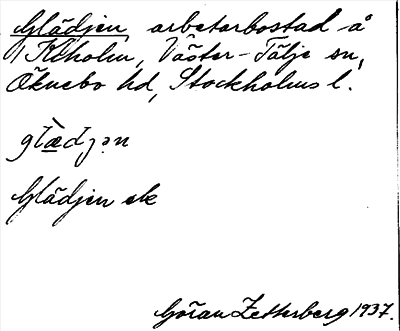 Glädjen, arbetarbostad å
Ekholm, Väster-Tälje sn,
Öknebo hd, Stockholms l.
glæ̀djən
Glädjen ek
Göran Zetterberg 1937.